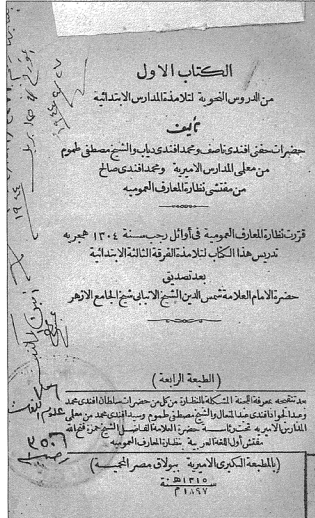 الكتاب الاول
من الدروس النحوية لتلامذة المدارس الابتدائية
تأليف
حضرات حفنى افندى ناصف ومحمد افندى دياب والشيخ مصطفى طموم
من معلمى المدارس الاميرية ومحمد افندى صالح
من مفتشى نظارة المعارف العموميه
قررت نظارة المعارف العمومية فى أوائل رجب سنة ١٣٠٤ هجريه
تدريس هذا الكتاب لتلامذة الفرقة الثالثة الابتدائية
بعد تصديق
حضرة الامام العلامة شمس الدين الشيخ الانبابى شيخ الجامع الازهر
(الطبعة الرابعة)
بعد تنقيحه بمعرفة اللجنة المشكلة بالنظارة من كل من حضرات سلطان افندى محمد
وعبد الجواد افندى عبد المتعال والشيخ مصطفى طموم وسيد افندى محمد من معلمى
المدارس الاميريه تحت رئاسة حضرة العلامة الفاضل الشيخ حمزه فتح الله
مفتش أول اللغة العربية بنظارة المعارف العموميه
(بالمطبعة الكبرى الاميرية ببولاق مصر المحمية)
سنة
١٣١٥ هـ
١٨٩٧ م